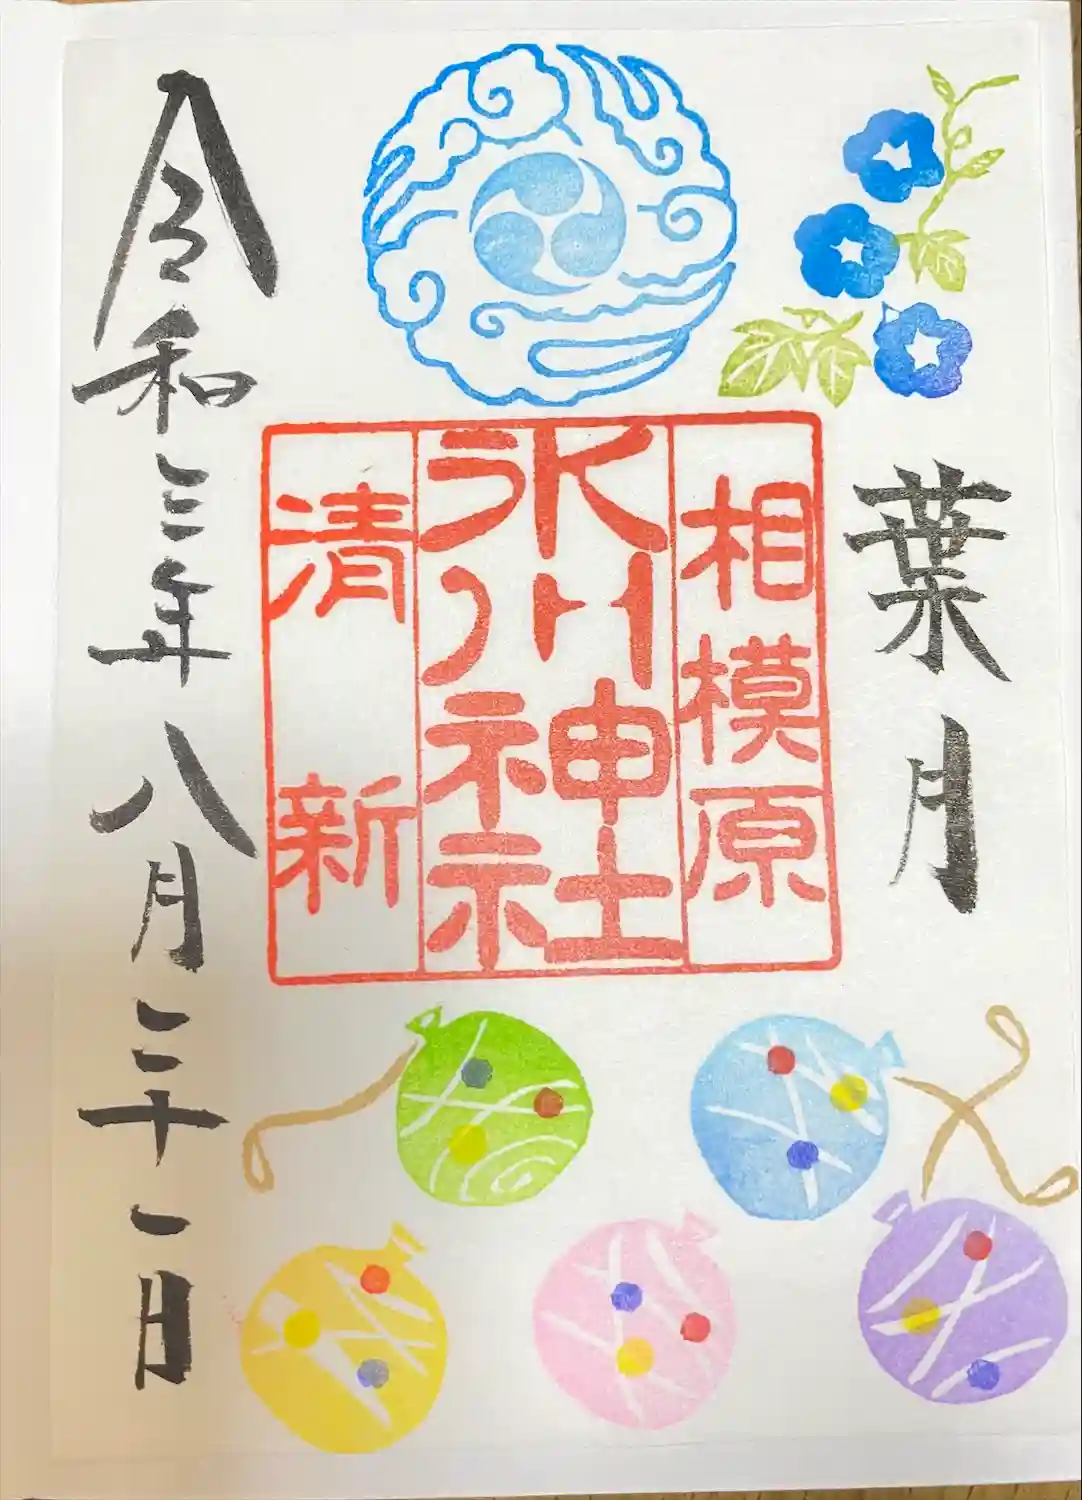 葉月
相模原
氷川神社
清新
令和三年八月二十一日